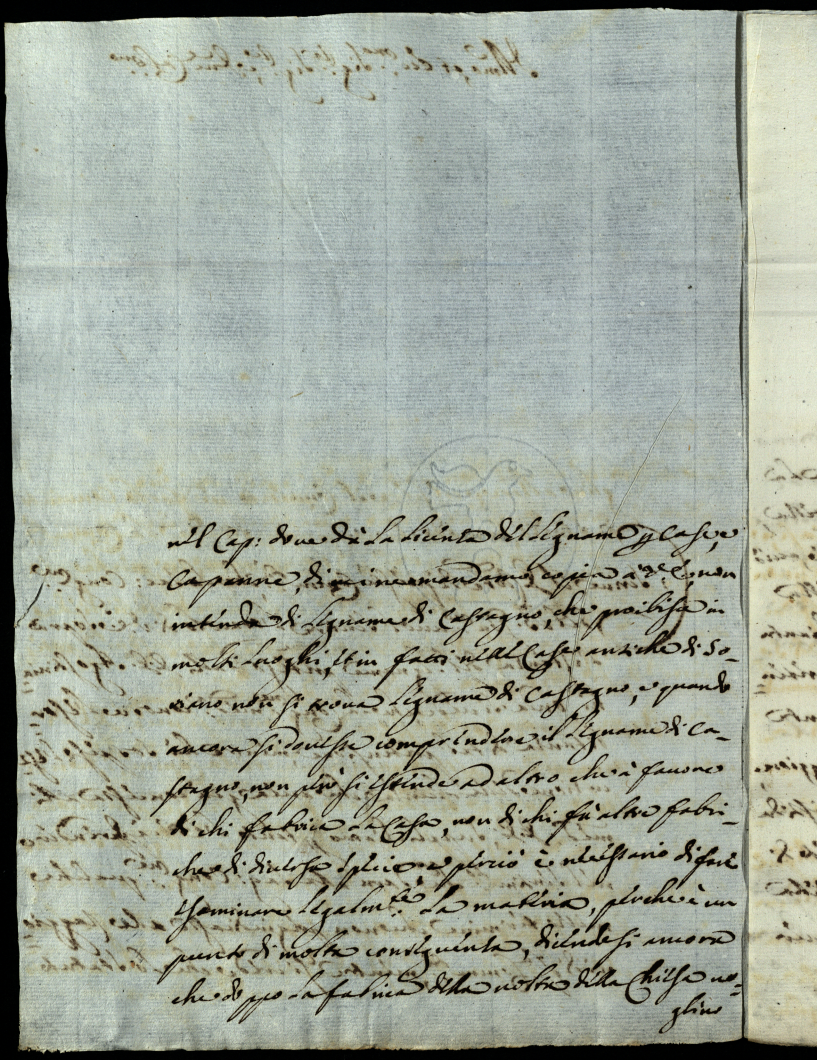 nel Cap: dove dà la licenza del legname p Case, e
Capanne, di cui ne mandamo copia a V.S. e non
intenda di legname di Castagno, che proibisce in
molti luoghi, et in facti nelle Case antiche di So-
riano non si trova legname di Castagno, e quando
ancora si dovesse comprendere il legname di Ca-
stagno, non però si estende ad altro che à favore
di chi fabrica la Casa, non di chi fà altre fabri-
che di diversa specie, e perciò è necessario di fare
esaminare legalm.te la materia, perche è un
punto di molta conseguenza, dicendosi ancora
che doppo la fabrica della nostra della Chiesa vo-
glino